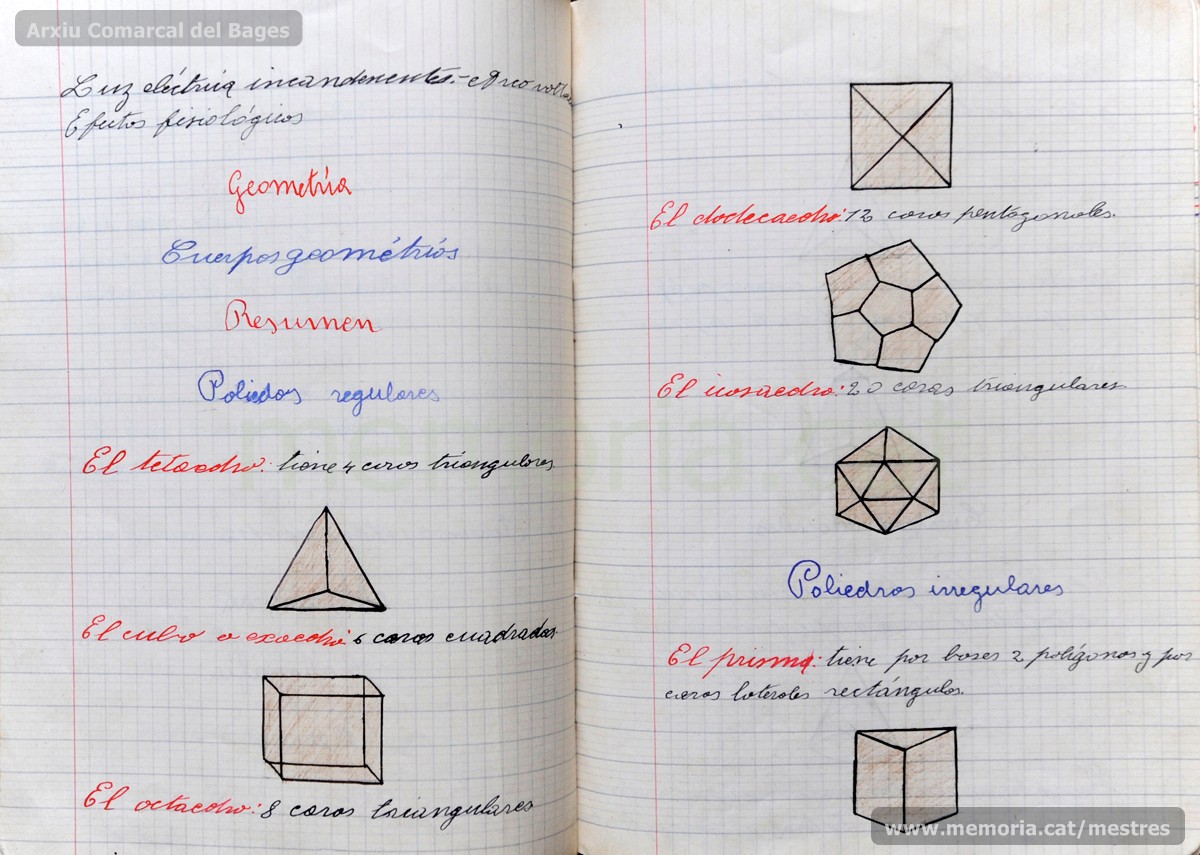 Arxiu Comarcal del Bages
Luz eléctrica incandenentes.- Arco volta
Efectos fisiológicos
Geometría
Cuerpos geométriós
Resumen
Poliedos regulares
El tetaedro: tiene 4 caras triangulares
El cubo o exaedro: 6 caras cuadradas.
El octaedro: 8 caras triangulares
El dodecaedro: 12 caras pentagonales.
El icosaedro: 20 caras triangulares
Poliedros irregulares
El prisma: tiene por bases 2 polígonos y por
caras laterales rectángulos.
memoria.cat
www.memoria.cat/mestres